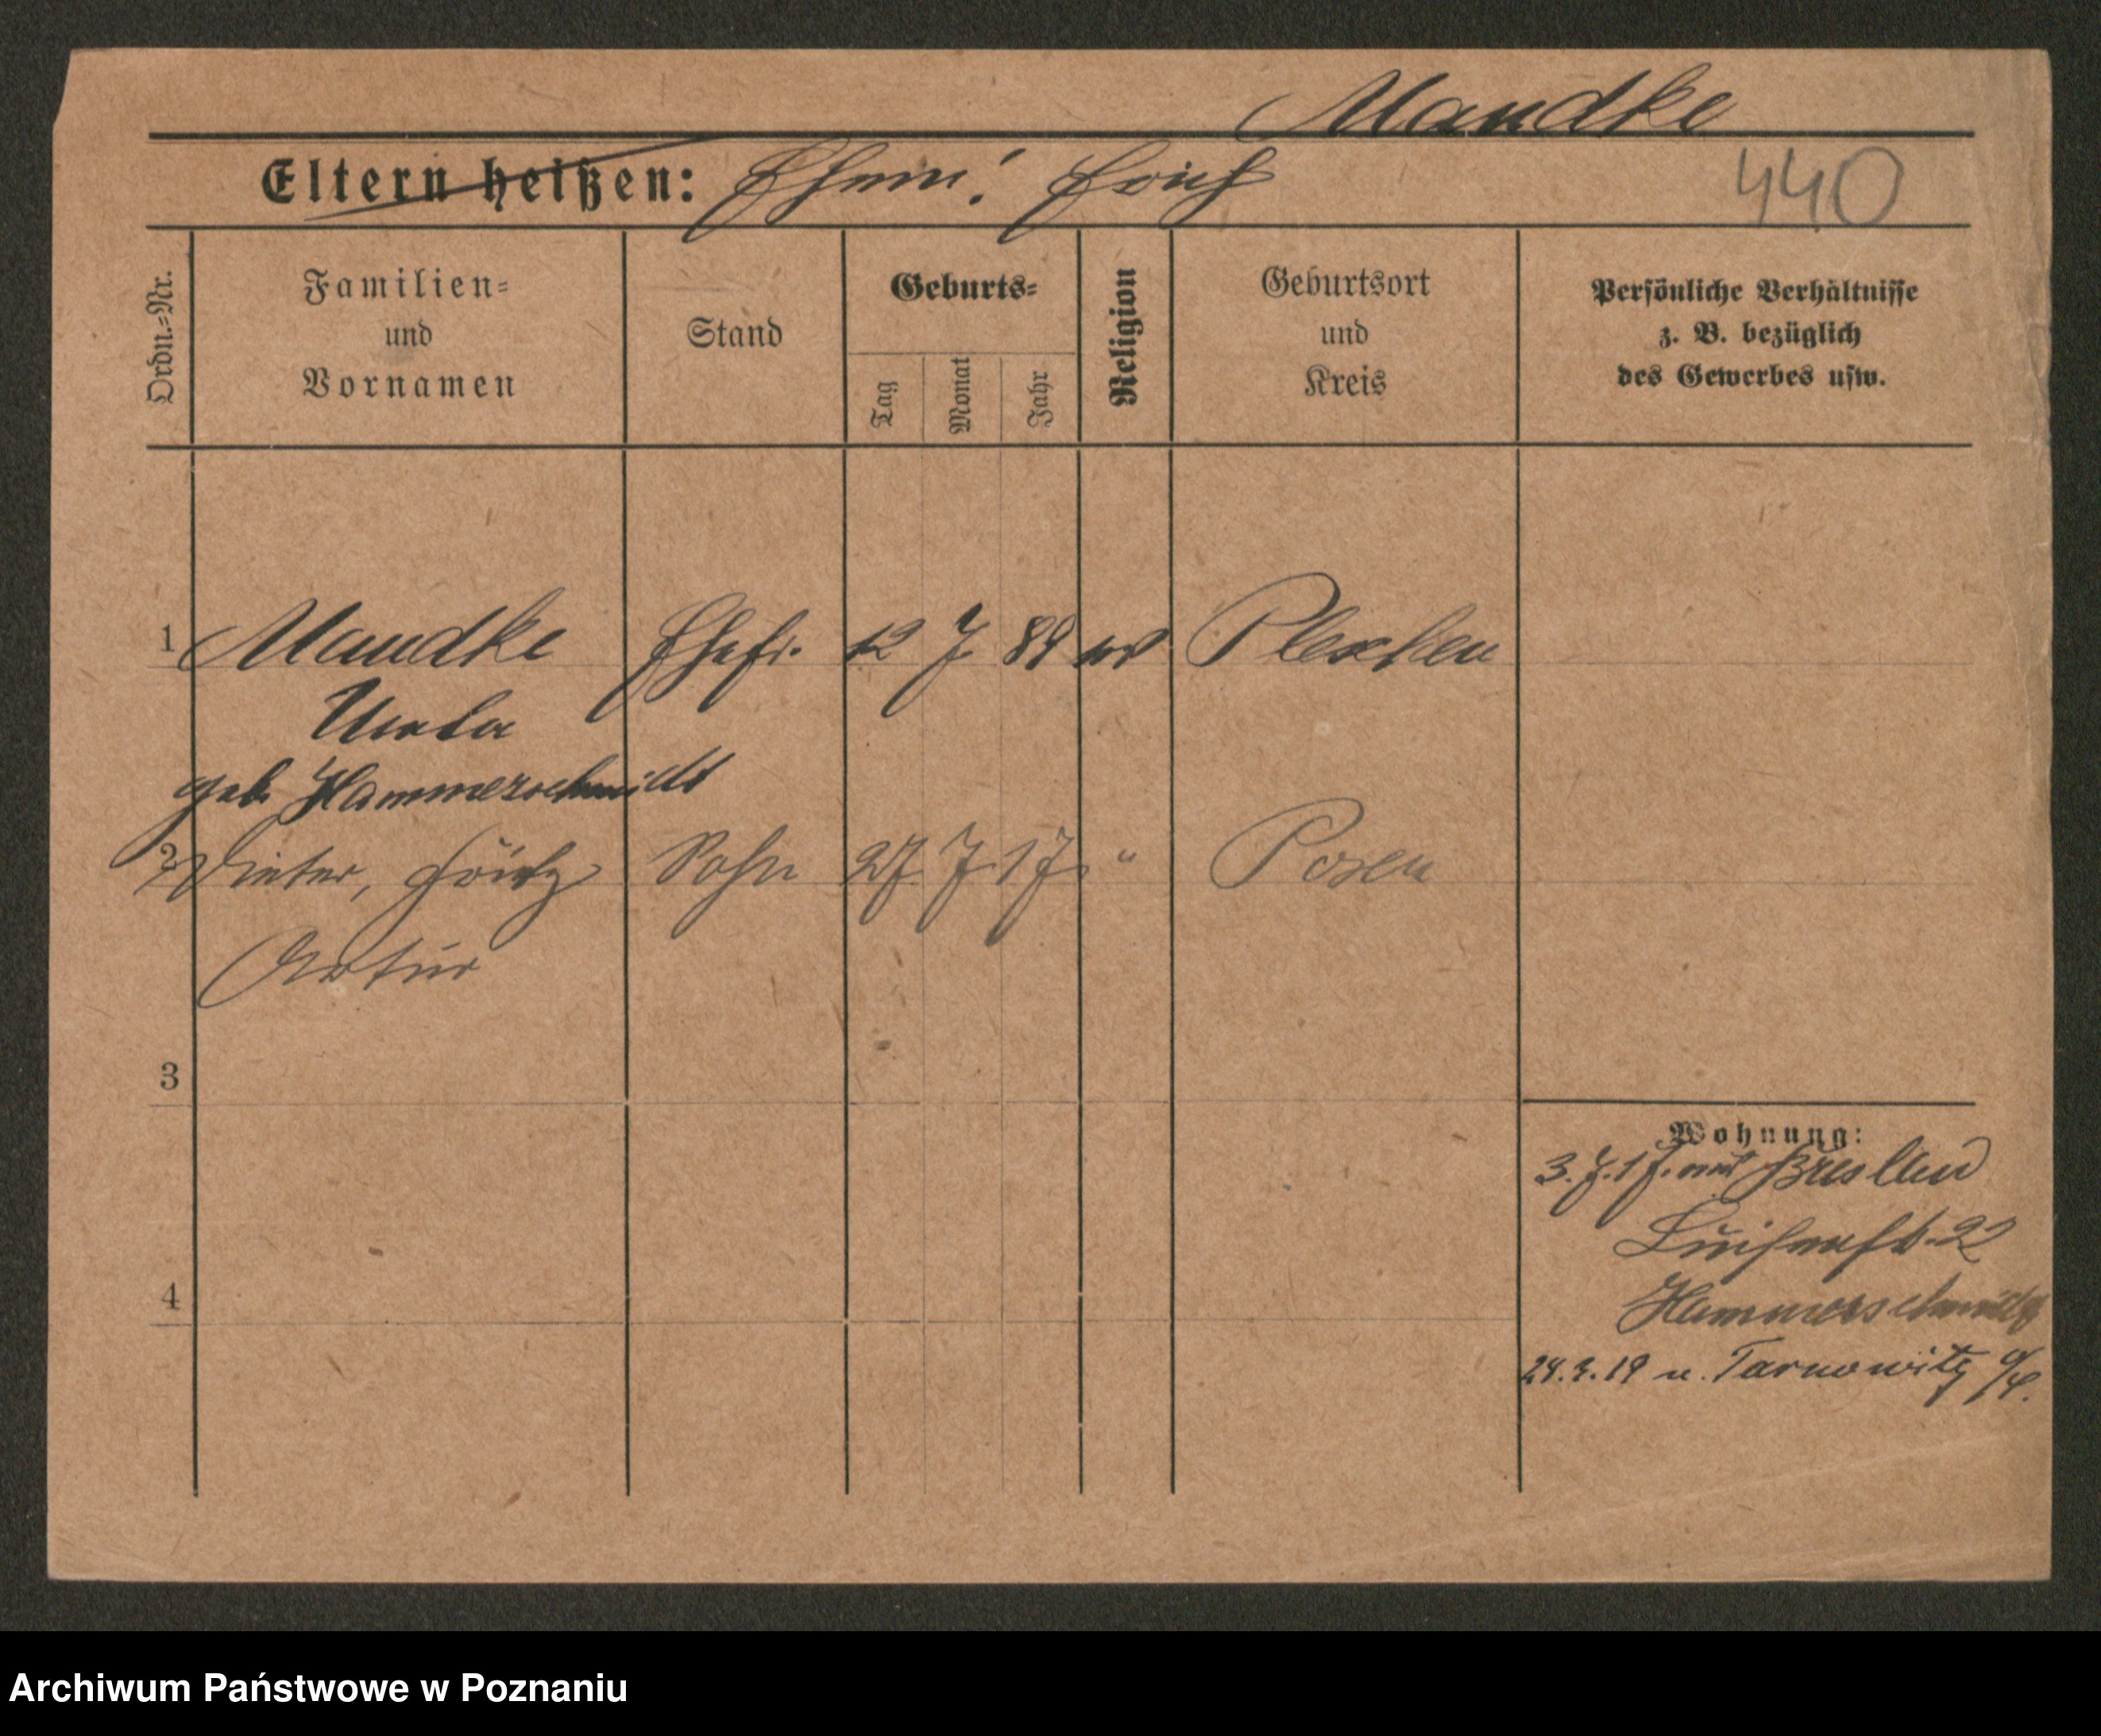 Mandke
Eltern heißen: Ehem: Erich
440
Ordn.=Nr.
Familien=
und
Vornamen
Stand
Geburts=
Tag
Monat
Jahr
Religion
Geburtsort
und
Kreis
Persönliche Verhältnisse
z. B. bezüglich
des Gewerbes usw.
1 Mandke Ehefr. 12 7 89 Pleschen
geb. Hammerschmidt
2 Dieter, Sohn 27 7 17 " Posen
Artur
3
4
Wohnung:
3.7.17. Breslau
Luisenstr. 22
Hammerschmidt
19 n. Tarnowitz
Archiwum Państwowe w Poznaniu